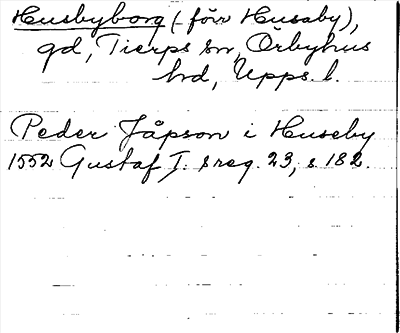 Husbyborg (-förr Husaby),
gd, Tierps sn, Örbyhus
hd, Upps. l.
Peder Jåpson i Huseby
1552 Gustaf I. s reg. 23, s. 182.